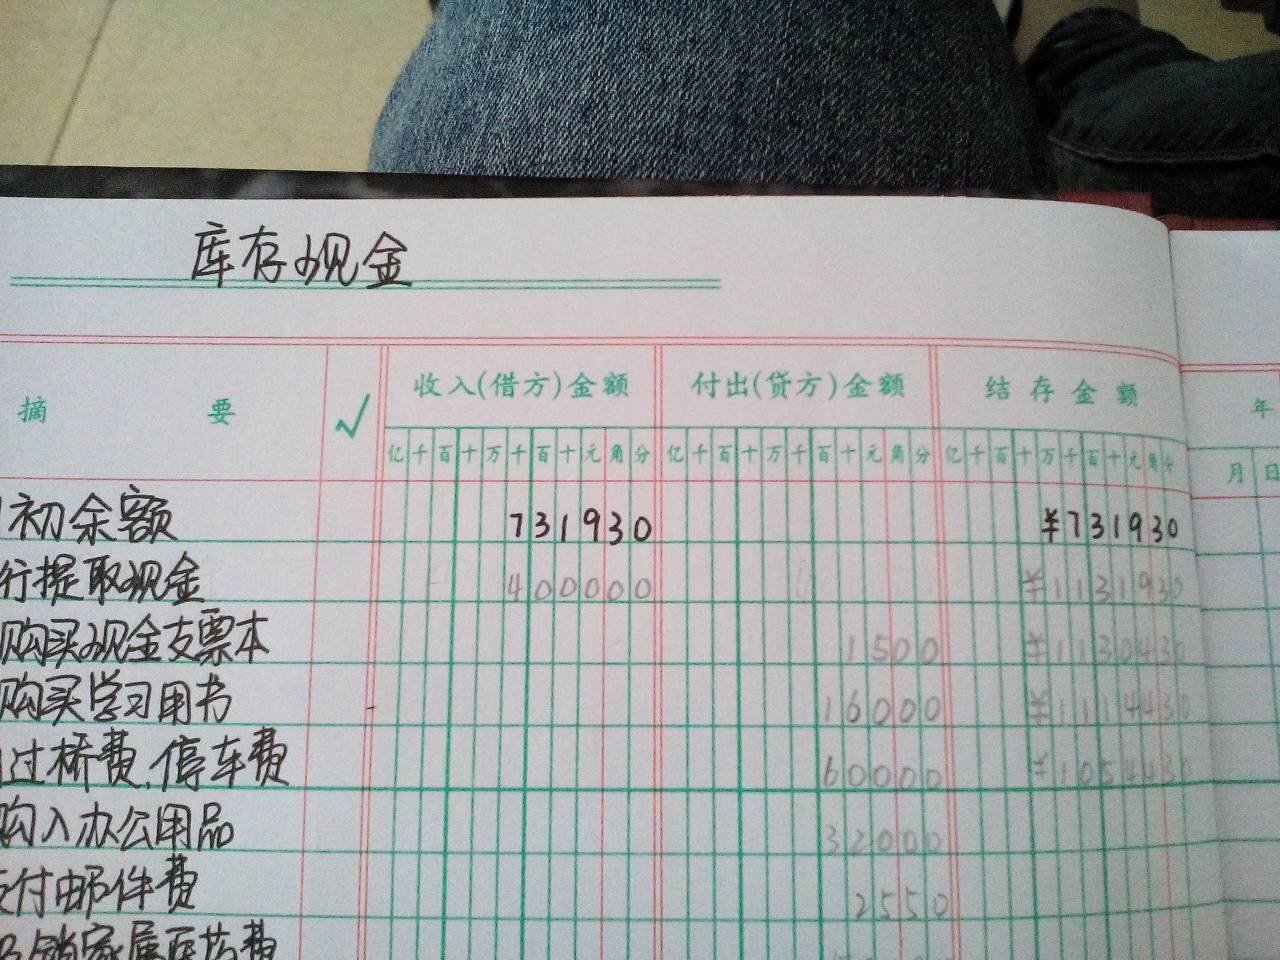 库存现金
摘 要 √ 收入(借方)金额 付出(贷方)金额 结存金额 年
亿千百十万千百十元角分 亿千百十万千百十元角分 亿千百十万千百十元角分 月 日
初余额 731930 ¥731930
行提取现金 400000 ¥1131930
购买现金支票本 1500 ¥1130430
购买学习用书 16000 ¥1114430
过桥费、停车费 60000 ¥1054430
购入办公用品 32000
付邮件费 2550
销家属医药费